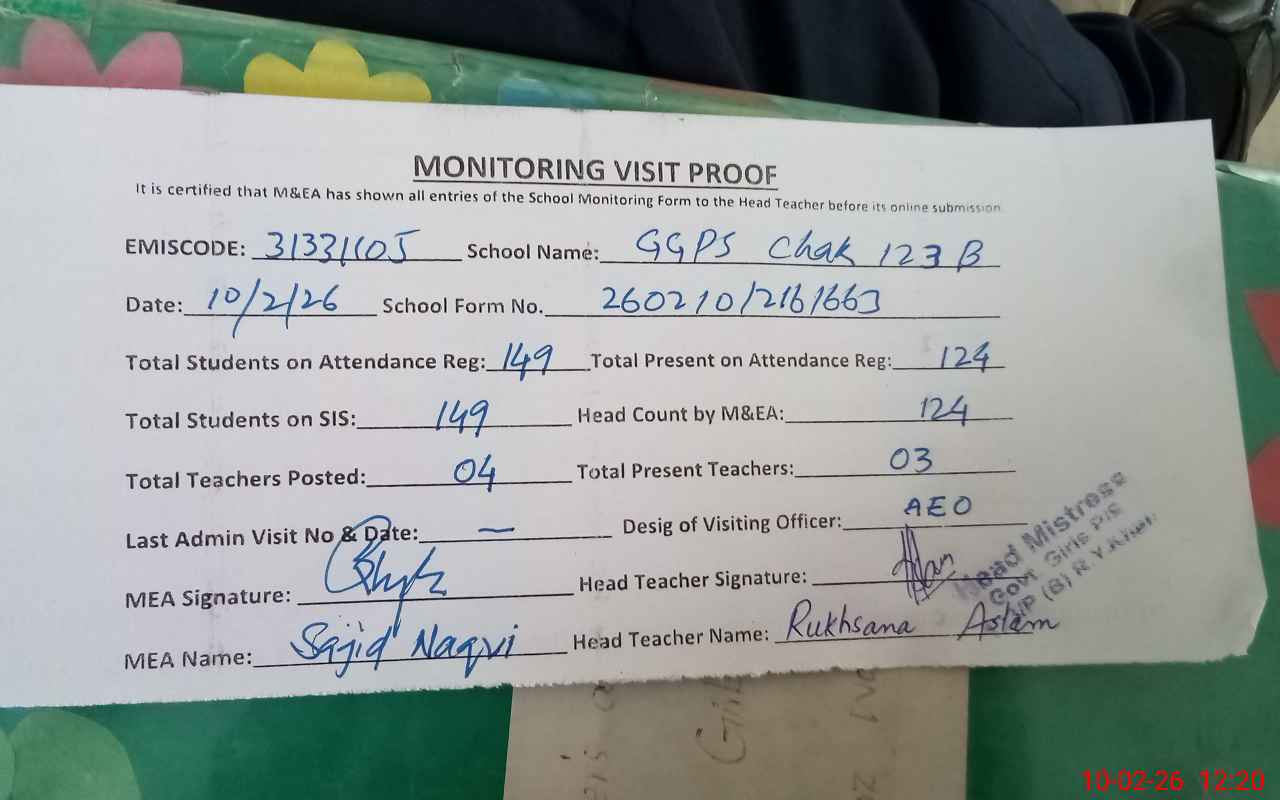 MONITORING VISIT PROOF
It is certified that M&EA has shown all entries of the School Monitoring Form to the Head Teacher before its online submission.
EMISCODE: 31331105 School Name: GGPS Chak 123 B
Date: 10/2/26 School Form No. 260210/216/663
Total Students on Attendance Reg: 149 Total Present on Attendance Reg: 124
Total Students on SIS: 149 Head Count by M&EA: 124
Total Teachers Posted: 04 Total Present Teachers: 03
Last Admin Visit No & Date: — Desig of Visiting Officer: AEO
MEA Signature: Head Teacher Signature:
MEA Name: Sajid Naqvi Head Teacher Name: Rukhsana Aslam
Head Mistress
Govt Girls P/S
(B) R.Y.Khan
10-02-26 12:20